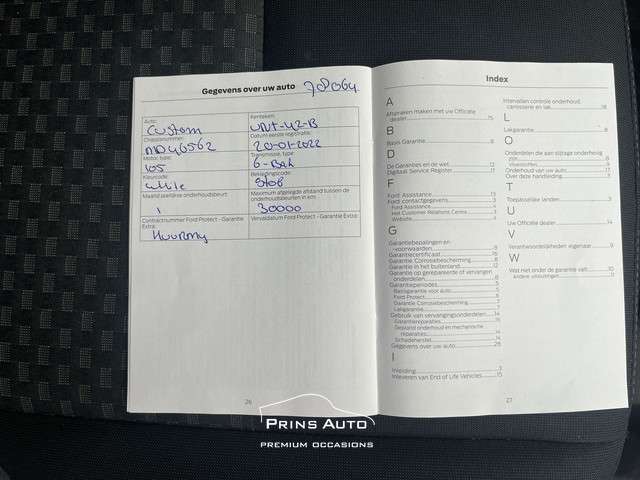 Gegevens over uw auto 78064
Auto:
Custom
Chassisnummer:
Motor type:
105
Kleurcode:
white
Maand jaarlijkse onderhoudsbeurt:
1
Contractnummer Ford Protect - Garantie
Extra:
Kenteken:
VNT-42-B
Datum eerste registratie:
20-01-2022
Transmissie, type:
6-Bak
Bekledingscode:
Stof
Maximum afgelegde afstand tussen de
onderhoudsbeurten in km:
30000
Vervaldatum Ford Protect - Garantie Extra:
26
Index
A
Afspraken maken met uw Officiële
dealer 15
B
Basis Garantie 8
D
De Garanties en de wet 12
Digitaal Service Register 17
F
Ford Assistance 13
Ford: contactgegevens 3
Ford Assistance 3
Het Customer Relations Centre 3
Website 3
G
Garantiebepalingen en
-voorwaarden 9
Garantiecertificaat 16
Garantie Corrosiebescherming 8
Garantie in het buitenland 12
Garantie op gerepareerde of vervangen
onderdelen 8
Garantieperiodes 5
Basisgarantie voor auto 5
Ford Protect 6
Garantie Corrosiebescherming 7
Lakgarantie 7
Gebruik van vervangingsonderdelen 14
Garantiereparaties 14
Gepland onderhoud en mechanische
reparaties 14
Schadeherstel 14
Gegevens over uw auto 26
I
Inleiding 3
Inleveren van End of Life Vehicles 15
Intervallen controle onderhoud
carrosserie en lak 18
L
Lakgarantie 8
O
Onderdelen die aan slijtage onderhevig
zijn 8
Vloeistoffen 9
Onderhoud van uw auto 17
Over deze handleiding 3
T
Toepasselijke landen 3
U
Uw Officiële dealer 14
V
Verantwoordelijkheden eigenaar 9
W
Wat niet onder de garantie valt 10
Andere uitsluitingen 11
27
PRINS AUTO
PREMIUM OCCASIONS